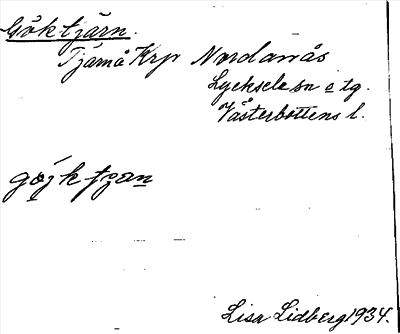 Göktjärn.
Tjärn å Krp Nordanås
Lycksele sn o tg.
Västerbottens l.
gøjktjan
Lisa Lidberg 1934.